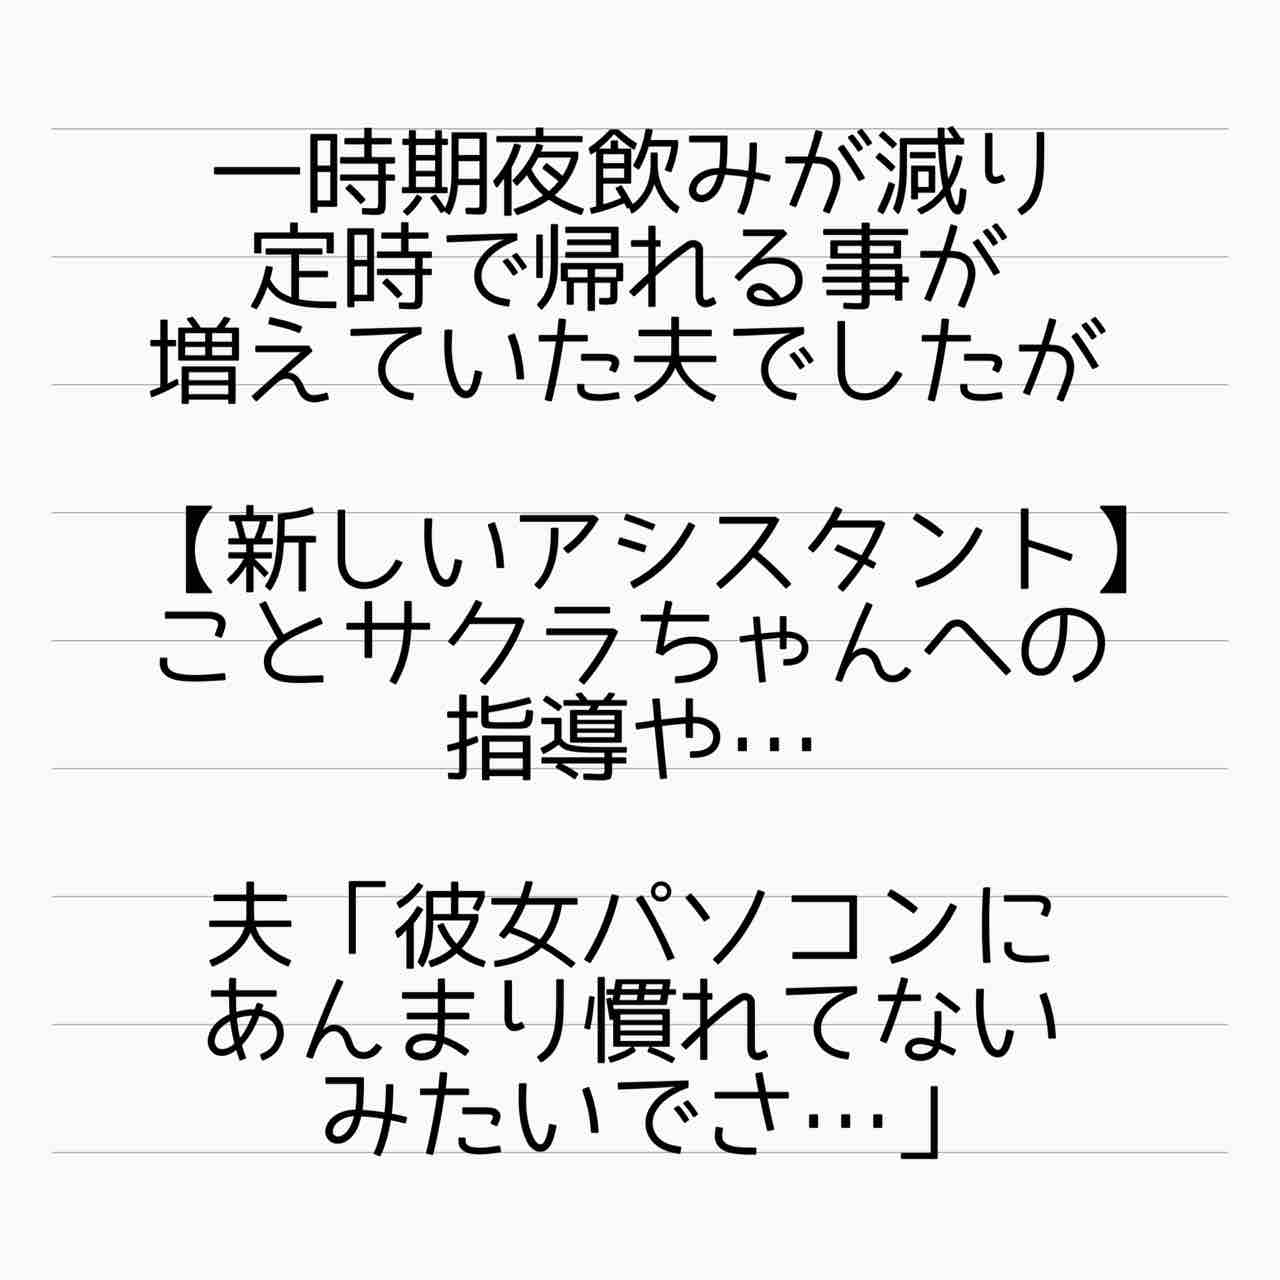 一時期夜飲みが減り
定時で帰れる事が
増えていた夫でしたが
【新しいアシスタント】
ことサクラちゃんへの
指導や…
夫「彼女パソコンに
あんまり慣れてない
みたいでさ…」